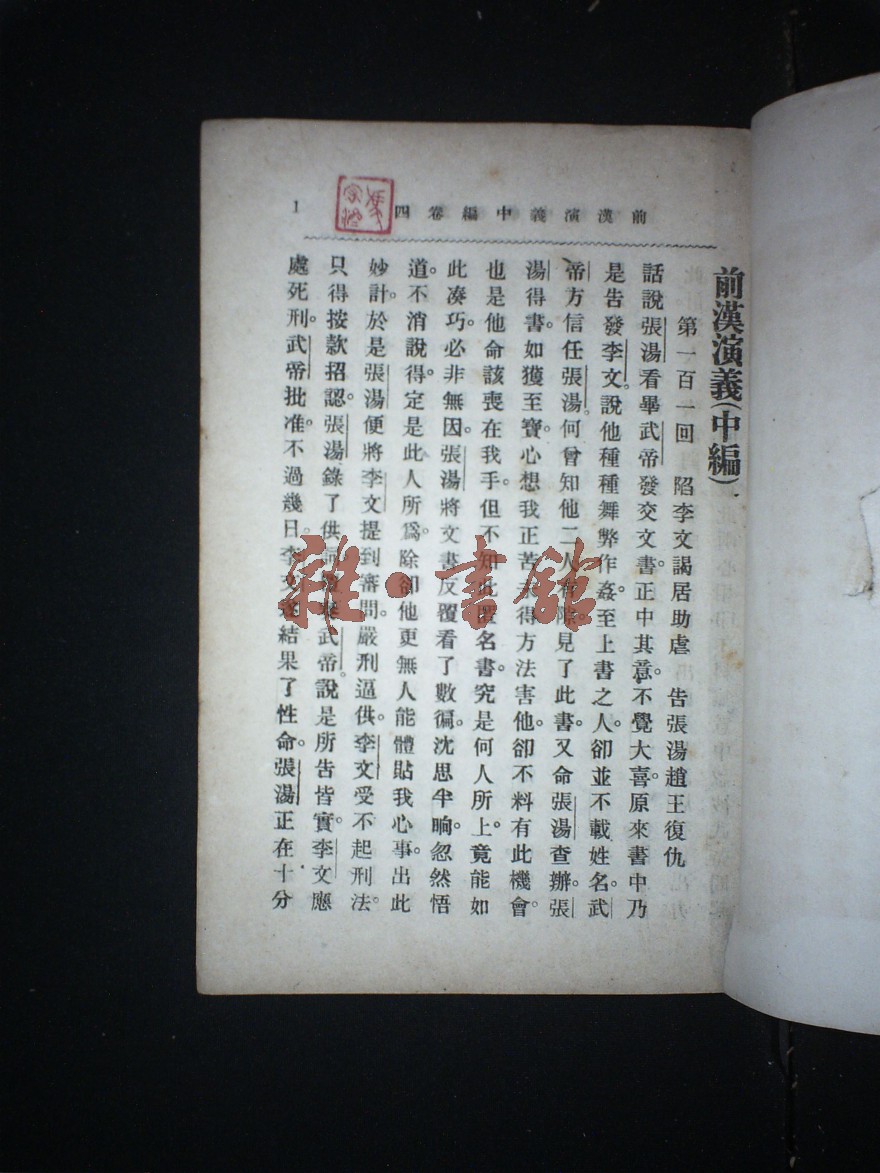 前漢演義中編卷四
1
前漢演義(中編)
第一百一回 陷李文謁居助虐 告張湯趙王復仇
話說張湯看畢武帝發交文書。正中其意。不覺大喜。原來書中乃
是告發李文。說他種種舞弊作姦。至上書之人。卻並不載姓名。武
帝方信任張湯。何曾知他二人有隙。見了此書。又命張湯查辦。張
湯得書。如獲至寶。心想我正苦未得方法害他。卻不料有此機會。
也是他命該喪在我手。但不知此匿名書。究是何人所上。竟能如
此凑巧。必非無因。張湯將文書反覆看了數徧。沈思半晌。忽然悟
道。不消說得。定是此人所爲。除卻他更無人能體貼我心事。出此
妙計。於是張湯便將李文提到審問。嚴刑逼供。李文受不起刑法。
只得按款招認。張湯錄了供詞。武帝。說是所告皆實。李文應
處死刑。武帝批准。不過幾日。李文遂結果了性命。張湯正在十分
雜·書館